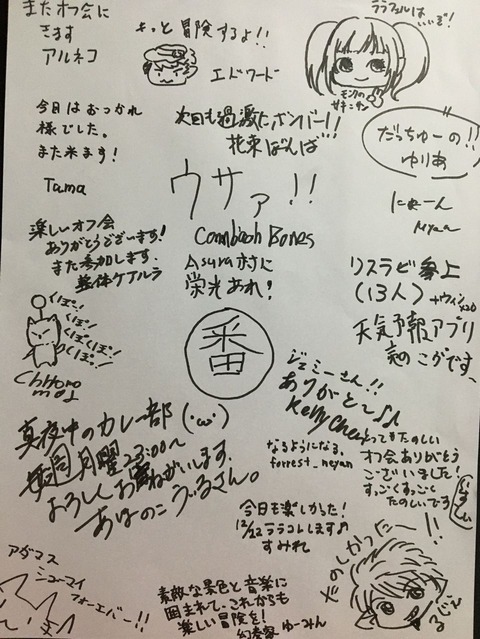 またオフ会に
きます
アルネコ
もっと冒険するよ!!
エドワード
ララフェルはいいぞ!
モンクの
だっちゅーの!!
ゆりあ
今日はおつかれ
様でした。
また来ます!
Tama
次回も過激にボンバー!!
花束ばんば
ウサァ!!
Connbaoh Bones
Asura村に
栄光あれ!
にゃーん
Myaa
楽しいオフ会
ありがとうございます!
また参加します.
整体ケアルラ
リスラビ参上
(13人)
天気予報アプリ
のこがです、
くぽ!
くぽ!
くぽぽ!
のくぽ!
Chihoro
mot
番
ジェミーさん!!
ありがと~♪
Kelly Chen
真夜中のカレー部(･ω･)
毎週月曜23:00~
よろしくお願ねがいします.
あほのこ うぃるさん。
なるようになる.
forrest_neyan
とってもたのしい
オフ会ありがとう
ございました!
すっごくすっごく
たのしいです
今日も楽しかった!
12/22 ララコレします♪
すみれ
たのしかったー!!
るびぃ
アダマス
シューマイ
フォーエバー!!
素敵な景色と音楽に
囲まれて、これからも
楽しい冒険を!
幻想家 ゆーみん